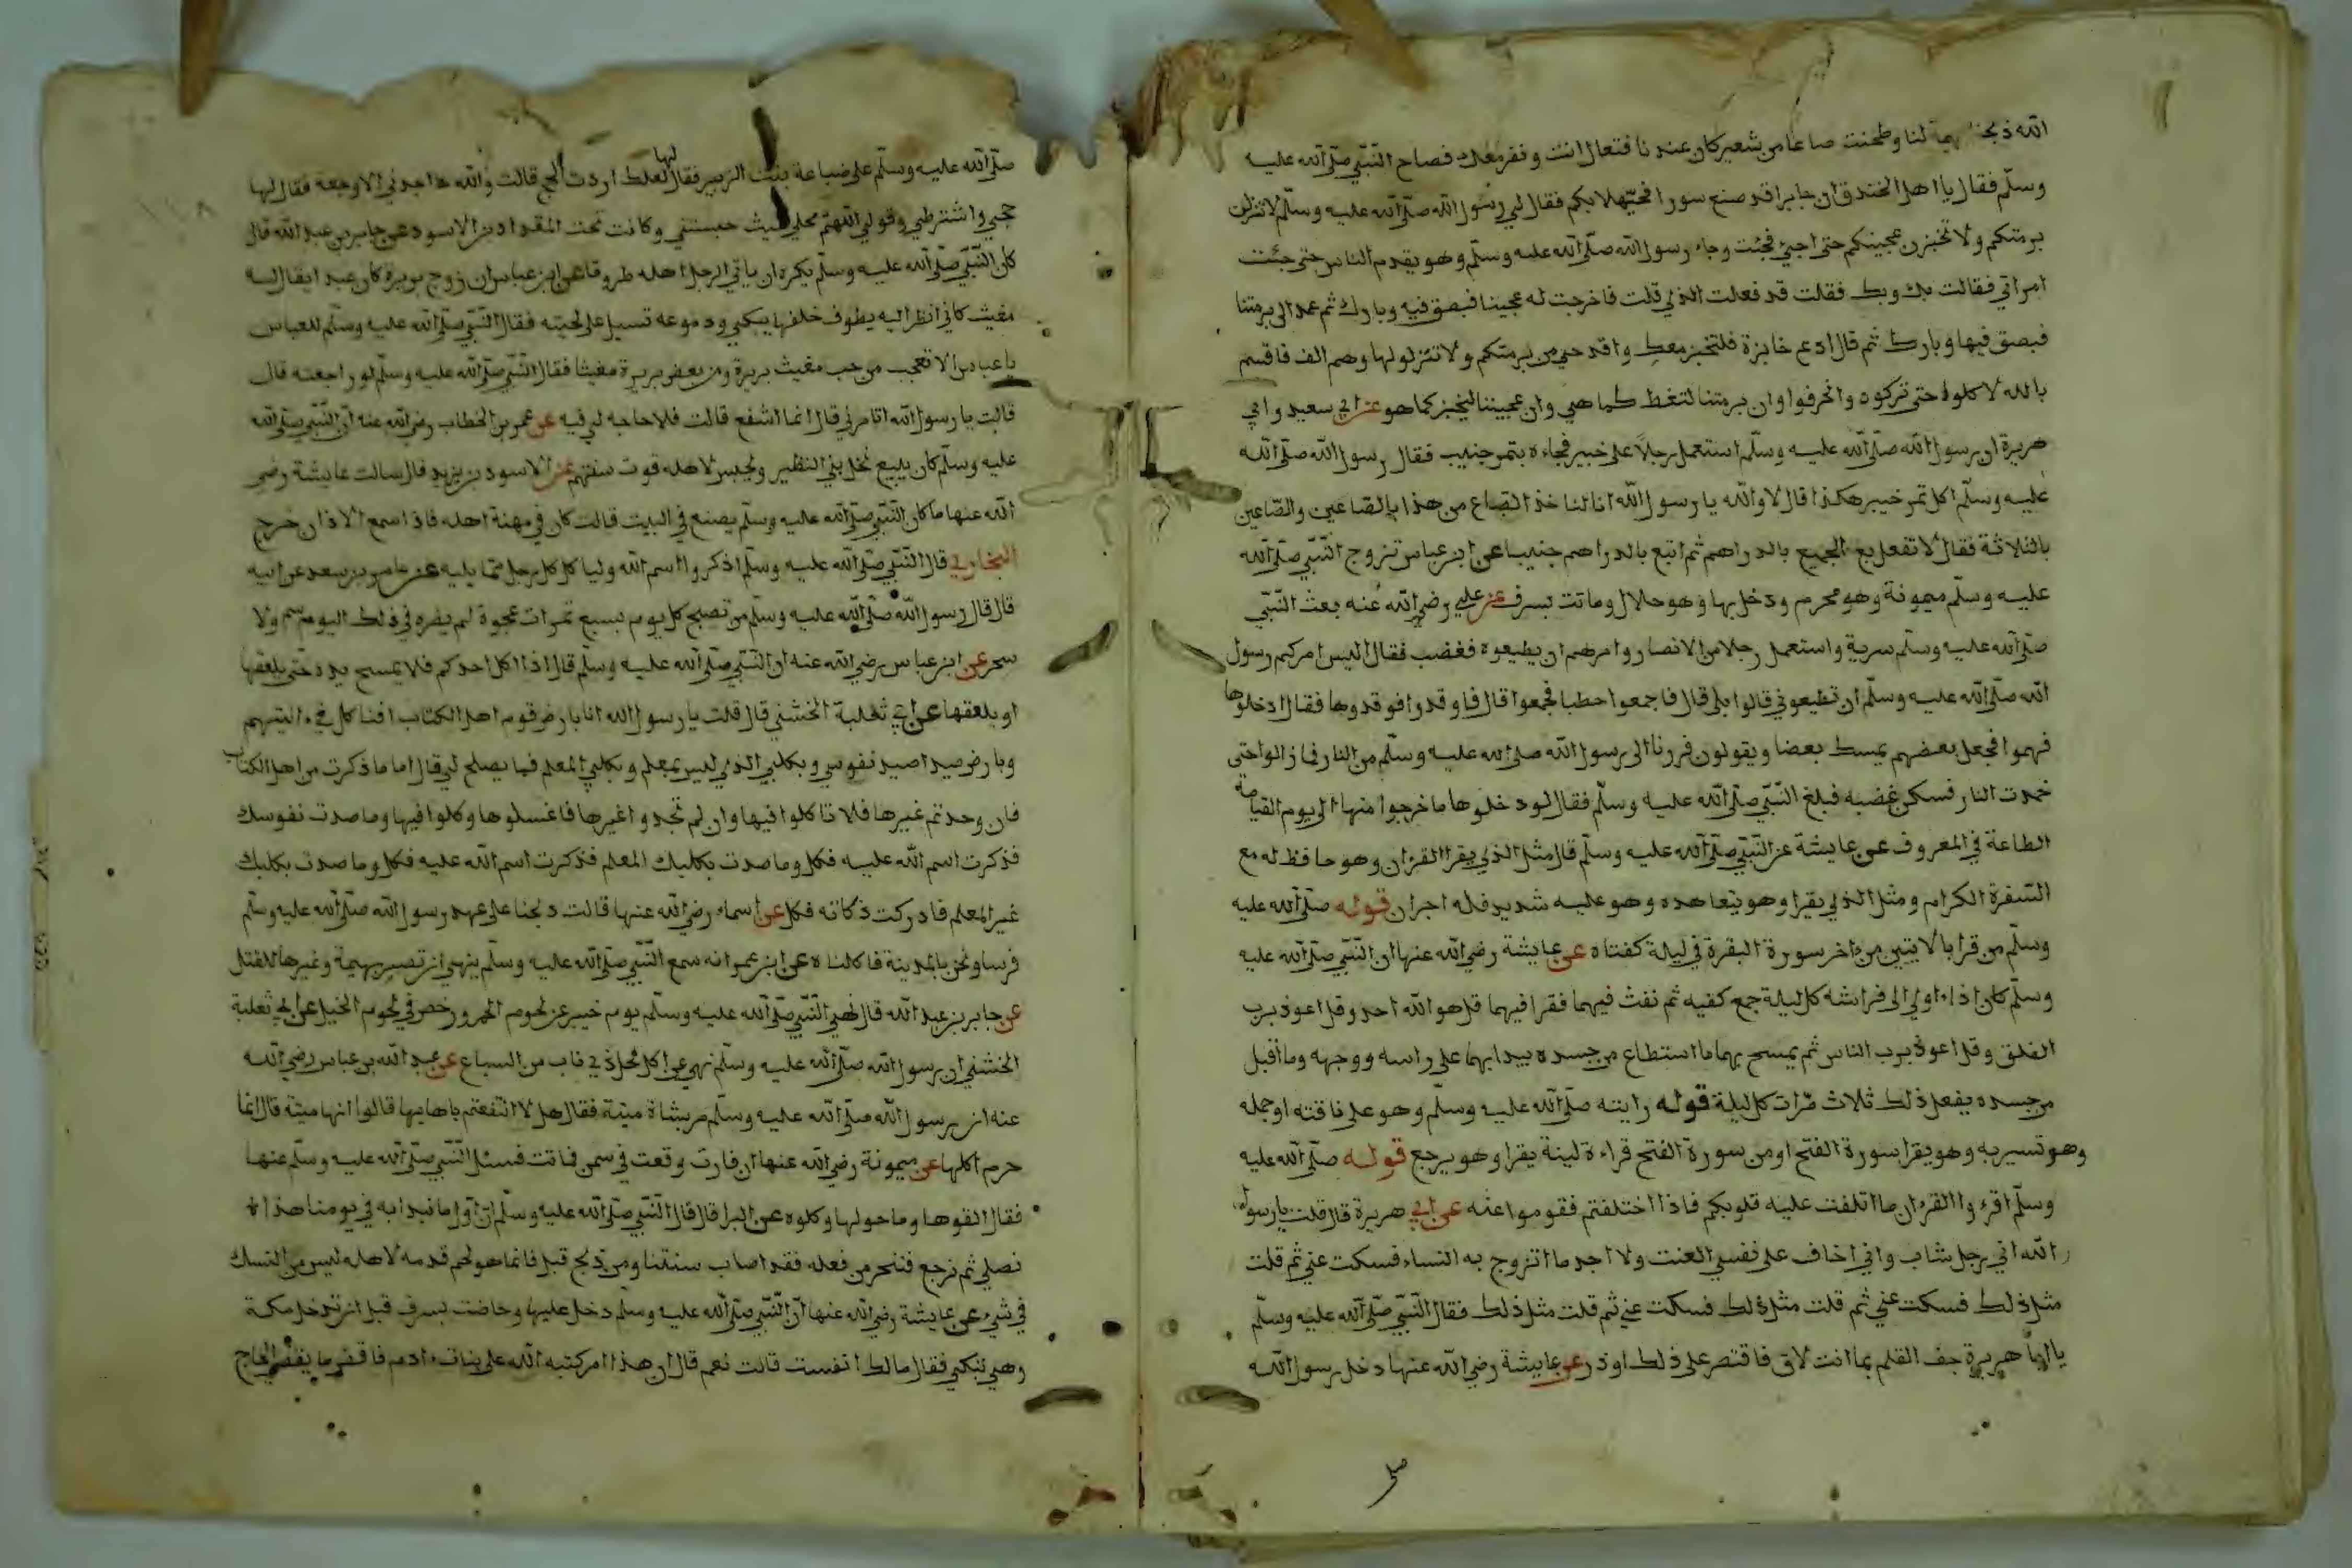 الله ذبحنا بهيمة لنا وطحنت صاعا من شعير كان عندنا فتعال انت ونفر معك فصاح النبي صلى الله عليه
وسلم فقال يا اهل الخندق ان جابرا قد صنع سورا فحيهلا بكم فقال لي رسول الله صلى الله عليه وسلم لا تنزلن
برمتكم ولا تخبزن عجينكم حتى اجيء فجئت وجاء رسول الله صلى الله عليه وسلم وهو يقدم الناس حتى جئت
امراتي فقالت بك وبك فقلت قد فعلت الذي قلت فاخرجت له عجينا فبصق فيه وبارك ثم عمد الى برمتنا
فبصق فيها وبارك ثم قال ادع خابزة فلتخبز معك واقدحي من برمتكم ولا تنزلولها وهم الف فاقسم
بالله لاكلوا حتى تركوه وانحرفوا وان برمتنا لتغط كما هي وان عجيننا ليخبز كما هو عن ابي سعيد وابي
هريرة ان رسول الله صلى الله عليه وسلم استعمل رجلا على خيبر فجاءه بتمر جنيب فقال رسول الله صلى الله
عليه وسلم اكل تمر خيبر هكذا قال لا والله يا رسول الله انا لنا خذ الصاع من هذا بالصاعين والصاعين
بالثلاثة فقال لا تفعل بع الجميع بالدراهم ثم اتبع بالدراهم جنيبا عن ابن عباس تزوج النبي صلى الله
عليه وسلم ميمونة وهو محرم ودخل بها وهو حلال وماتت بسرف عن علي رضي الله عنه بعث النبي
صلى الله عليه وسلم سرية واستعمل رجلا من الانصار وامرهم ان يطيعوه فغضب فقال اليس امركم رسول
الله صلى الله عليه وسلم ان تطيعوني قالوا بلى قال فاجمعوا حطبا فجمعوا قال فاوقدوا فوقدوها فقال ادخلوها
فهموا فجعل بعضهم يمسك بعضا ويقولون فررنا الى رسول الله صلى الله عليه وسلم من النار فما زالوا حتى
خمدت النار فسكن غضبه فبلغ النبي صلى الله عليه وسلم فقال لو دخلوها ما خرجوا منها الى يوم القيامة
الطاعة في المعروف عن عايشة عن النبي صلى الله عليه وسلم قال مثل الذي يقرا القران وهو حافظ له مع
السفرة الكرام ومثل الذي يقرا وهو يتعاهده وهو عليه شديد فله اجران قوله صلى الله عليه
وسلم من قرا بالايتين من اخر سورة البقرة في ليلة كفتاه عن عايشة رضي الله عنها ان النبي صلى الله عليه
وسلم كان اذا اوى الى فراشه كل ليلة جمع كفيه ثم نفث فيهما فقرا فيهما قل هو الله احد وقل اعوذ برب
الفلق وقل اعوذ برب الناس ثم يمسح بهما ما استطاع من جسده يبدا بهما على راسه ووجهه وما اقبل
من جسده يفعل ذلك ثلاث مرات كل ليلة قوله رايته صلى الله عليه وسلم وهو على ناقته او جمله
وهو تسير به وهو يقرا سورة الفتح او من سورة الفتح قراءة لينة يقرا وهو يرجع قوله صلى الله عليه
وسلم اقرءوا القران ما اتلفت عليه قلوبكم فاذا اختلفتم فقوموا عنه عن ابي هريرة قال قلت يا رسول
الله اني رجل شاب واني اخاف على نفسي العنت ولا اجد ما اتزوج به النساء فسكت عني ثم قلت
مثل ذلك فسكت عني ثم قلت مثل ذلك فسكت عني ثم قلت مثل ذلك فقال النبي صلى الله عليه وسلم
يا ابا هريرة جف القلم بما انت لاق فاقتصر على ذلك او ذر عن عايشة رضي الله عنها دخل رسول الله
صلى الله عليه وسلم على ضباعة بنت الزبير فقال لها لعلك اردت الحج قالت والله ما اجدني الا وجعة فقال لها
حجي واشترطي وقولي اللهم محلي حيث حبستني وكانت تحت المقداد بن الاسود عن جابر بن عبد الله قال
كان النبي صلى الله عليه وسلم يكره ان ياتي الرجل اهله طروقا عن ابن عباس ان زوج بريرة كان عبدا يقال له
مغيث كاني انظر اليه يطوف خلفها يبكي ودموعه تسيل على لحيته فقال النبي صلى الله عليه وسلم للعباس
يا عباس الا تعجب من حب مغيث بريرة ومن بعض بريرة مغيثا فقال النبي صلى الله عليه وسلم لو راجعته قال
قالت يا رسول الله اتامرني قال انما اشفع قالت فلا حاجه لي فيه عن عمر بن الخطاب رضي الله عنه ان النبي صلى الله
عليه وسلم كان يبيع نخل بني النظير ويحبس لاهله قوت سنتهم عن الاسود بن يزيد قال سالت عايشة رضي
الله عنها ما كان النبي صلى الله عليه وسلم يصنع في البيت قالت كان في مهنة اهله فاذا سمع الاذان خرج
البخاري قال النبي صلى الله عليه وسلم اذكروا اسم الله ولياكل كل رجل مما يليه عن عامر بن سعد عن ابيه
قال قال رسول الله صلى الله عليه وسلم من تصبح كل يوم بسبع تمرات عجوة لم يضره في ذلك اليوم سم ولا
سحر عن ابن عباس رضي الله عنه ان النبي صلى الله عليه وسلم قال اذا اكل احدكم فلا يمسح يده حتى يلعقها
او يلعقها عن ابي ثعلبة الخشني قال قلت يا رسول الله انا بارض قوم اهل الكتاب افناكل في انيتهم
وبارض صيد اصيد نقوسي وبكلبي الذي ليس بمعلم وبكلبي المعلم فما يصلح لي قال اما ما ذكرت من اهل الكتاب
فان وجدتم غيرها فلا تاكلوا فيها وان لم تجدوا غيرها فاغسلوها وكلوا فيها وما صدت نقوسك
فذكرت اسم الله عليه فكل وما صدت بكلبك المعلم فذكرت اسم الله عليه فكل وما صدت بكلبك
غير المعلم فادركت ذكاته فكل عن اسماء رضي الله عنها قالت ذبحنا على عهد رسول الله صلى الله عليه وسلم
فرسا ونحن بالمدينة فاكلناه عن ابن عمر انه سمع النبي صلى الله عليه وسلم ينهى ان تصبر بهيمة وغيرها للقتل
عن جابر بن عبد الله قال نهى النبي صلى الله عليه وسلم يوم خيبر عن لحوم الحمر ورخص في لحوم الخيل عن ابي ثعلبة
الخشني ان رسول الله صلى الله عليه وسلم نهى عن اكل كل ذي ناب من السباع عن عبد الله بن عباس رضي الله
عنه ان رسول الله صلى الله عليه وسلم مر بشاة ميتة فقال هل لا انتفعتم باهابها قالوا انها ميتة قال انما
حرم اكلها عن ميمونة رضي الله عنها ان فارت وقعت في سمن فماتت فسئل النبي صلى الله عليه وسلم عنها
فقال القوها وما حولها وكلوه عن البرا قال قال النبي صلى الله عليه وسلم ان اول ما نبدا به في يومنا هذا
نصلي ثم نرجع فننحر من فعله فقد اصاب سنتنا ومن ذبح قبل فانما هو لحم قدمه لاهله ليس من النسك
في شيء عن عايشة رضي الله عنها ان النبي صلى الله عليه وسلم دخل عليها وحاضت بسرف قبل ان تدخل مكة
وهي تبكي فقال مالك انفست قالت نعم قال ان هذا امر كتبه الله على بنات ادم فاقضي ما يقضي الحاج